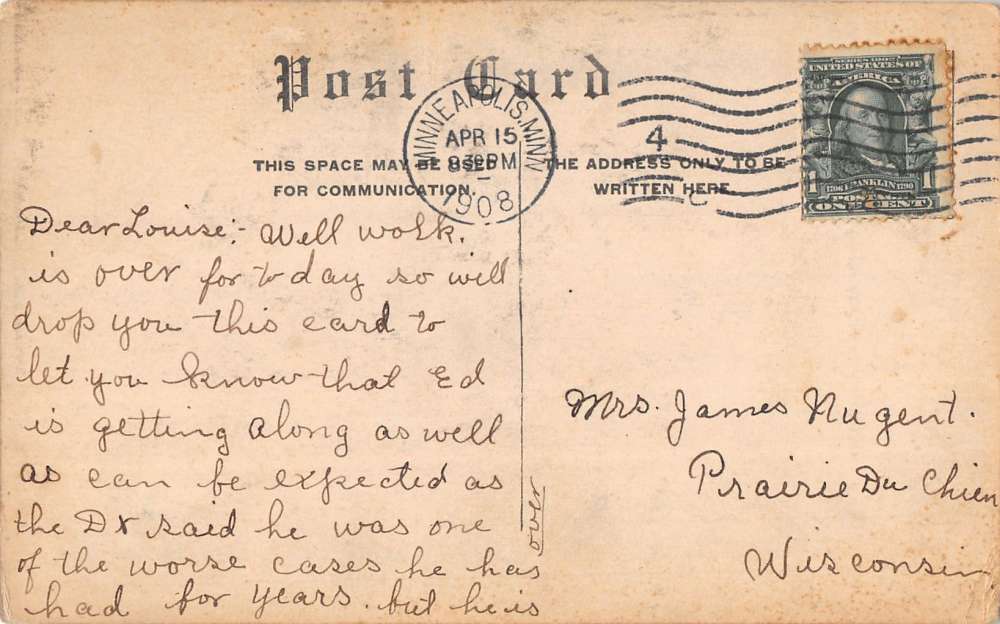 Post Card
MINNEAPOLIS, MINN
APR 15
1908
4
SERIES 1902
UNITED STATES OF
AMERICA
1706 FRANKLIN 1790
POSTAGE
1 ONE CENT 1
THIS SPACE MAY BE USED
FOR COMMUNICATION.
THE ADDRESS ONLY TO BE
WRITTEN HERE.
Dear Louise:- Well work.
is over for to day so will
drop you this card to
let you know that Ed
is getting along as well
as can be expected as
the Dr said he was one
of the worse cases he has
had for years. but he is
over
Mrs. James Nugent.
Prairie Du Chien
Wisconsin